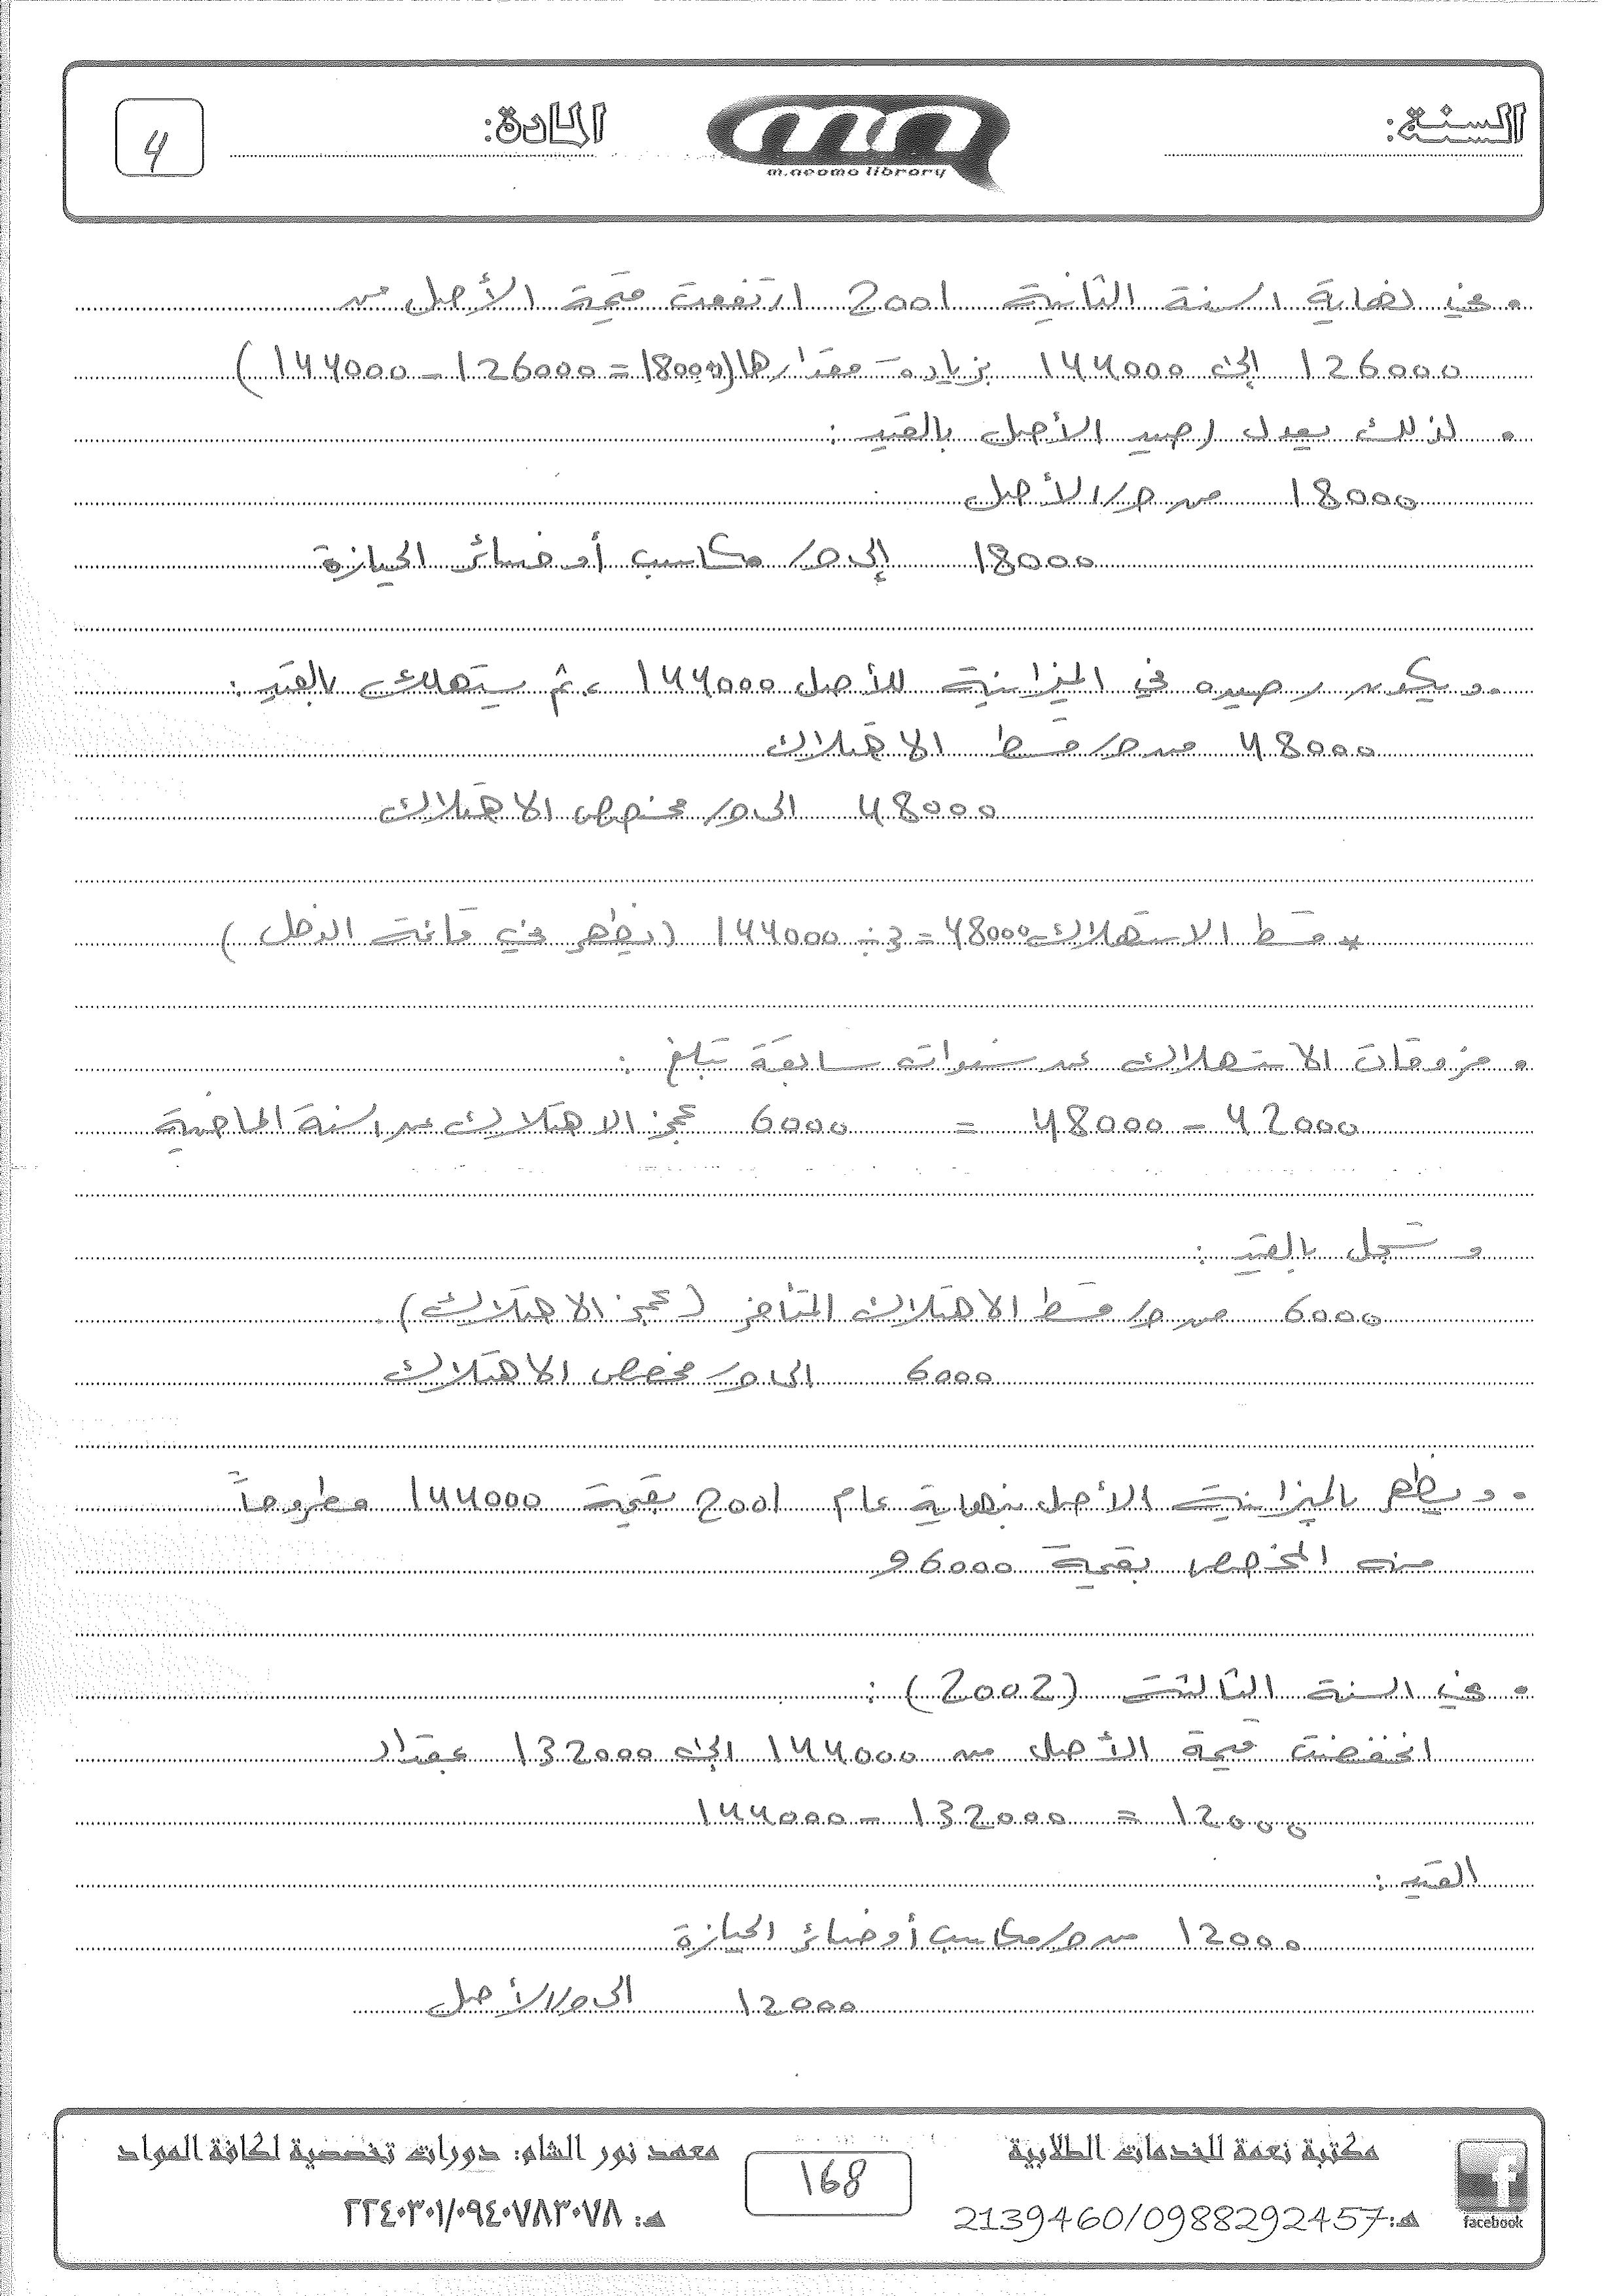 السنة:
m.neoma library
المادة:
4
• في نهاية السنة الثانية 2001 ارتفعت قيمة الأصل من
126000 إلى 144000 بزيادة مقدارها (18000 = 126000 - 144000)
• لذلك يعدل رصيد الأصل بالقيد:
18000 من ح/ الأصل
18000 إلى ح/ مكاسب أو خسائر الحيازة
• ويكون رصيده في الميزانية للأصل 144000، ثم يستهلك بالقيد:
48000 من ح/ قسط الاهتلاك
48000 الى ح/ مخصص الاهتلاك
* قسط الاستهلاك 48000 = 3 ÷ 144000 (يظهر في قائمة الدخل)
• فروقات الاستهلاك عن سنوات سابقة تبلغ:
48000 - 42000 = 6000 عجز الاهتلاك عن السنة الماضية
وتسجل بالقيد:
6000 من ح/ قسط الاهتلاك المتأخر (عجز الاهتلاك).
6000 الى ح/ مخصص الاهتلاك
• ويظهر بالميزانية الأصل بنهاية عام 2001 بقيمة 144000 مطروحاً
منه المخصص بقيمة 96000
• في السنة الثالثة (2002):
انخفضت قيمة الأصل من 144000 إلى 132000 بمقدار
144000 - 132000 = 12000
القيد:
12000 من ح/ مكاسب أو خسائر الحيازة
12000 الى ح/ الأصل
مكتبة نعمة للخدمات الطلابية
هـ: 2139460/0988292457
facebook
168
معهد نور الشام: دورات تخصصية لكافة المواد
هـ: ٢٢٤٠٣٠١/٠٩٤٠٧٨٣٠٧٨